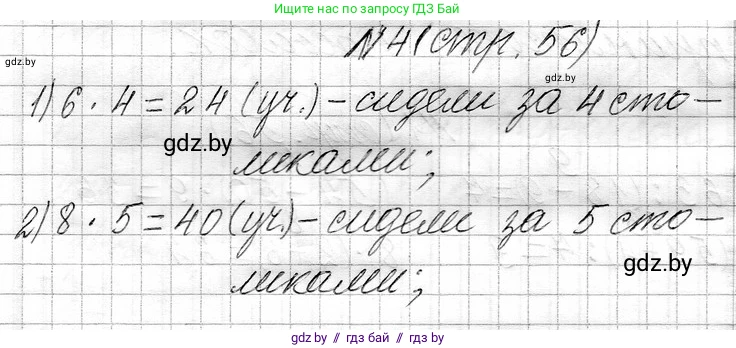 Ищите нас по запросу ГДЗ Бай
№4 (стр. 56)
gdz.by
gdz.by
1) 6 · 4 = 24 (уч.) – сидели за 4 сто–
gdz.by
ликами;
2) 8 · 5 = 40 (уч.) – сидели за 5 сто–
gdz.by
ликами;
gdz.by // гдз бай // gdz.by